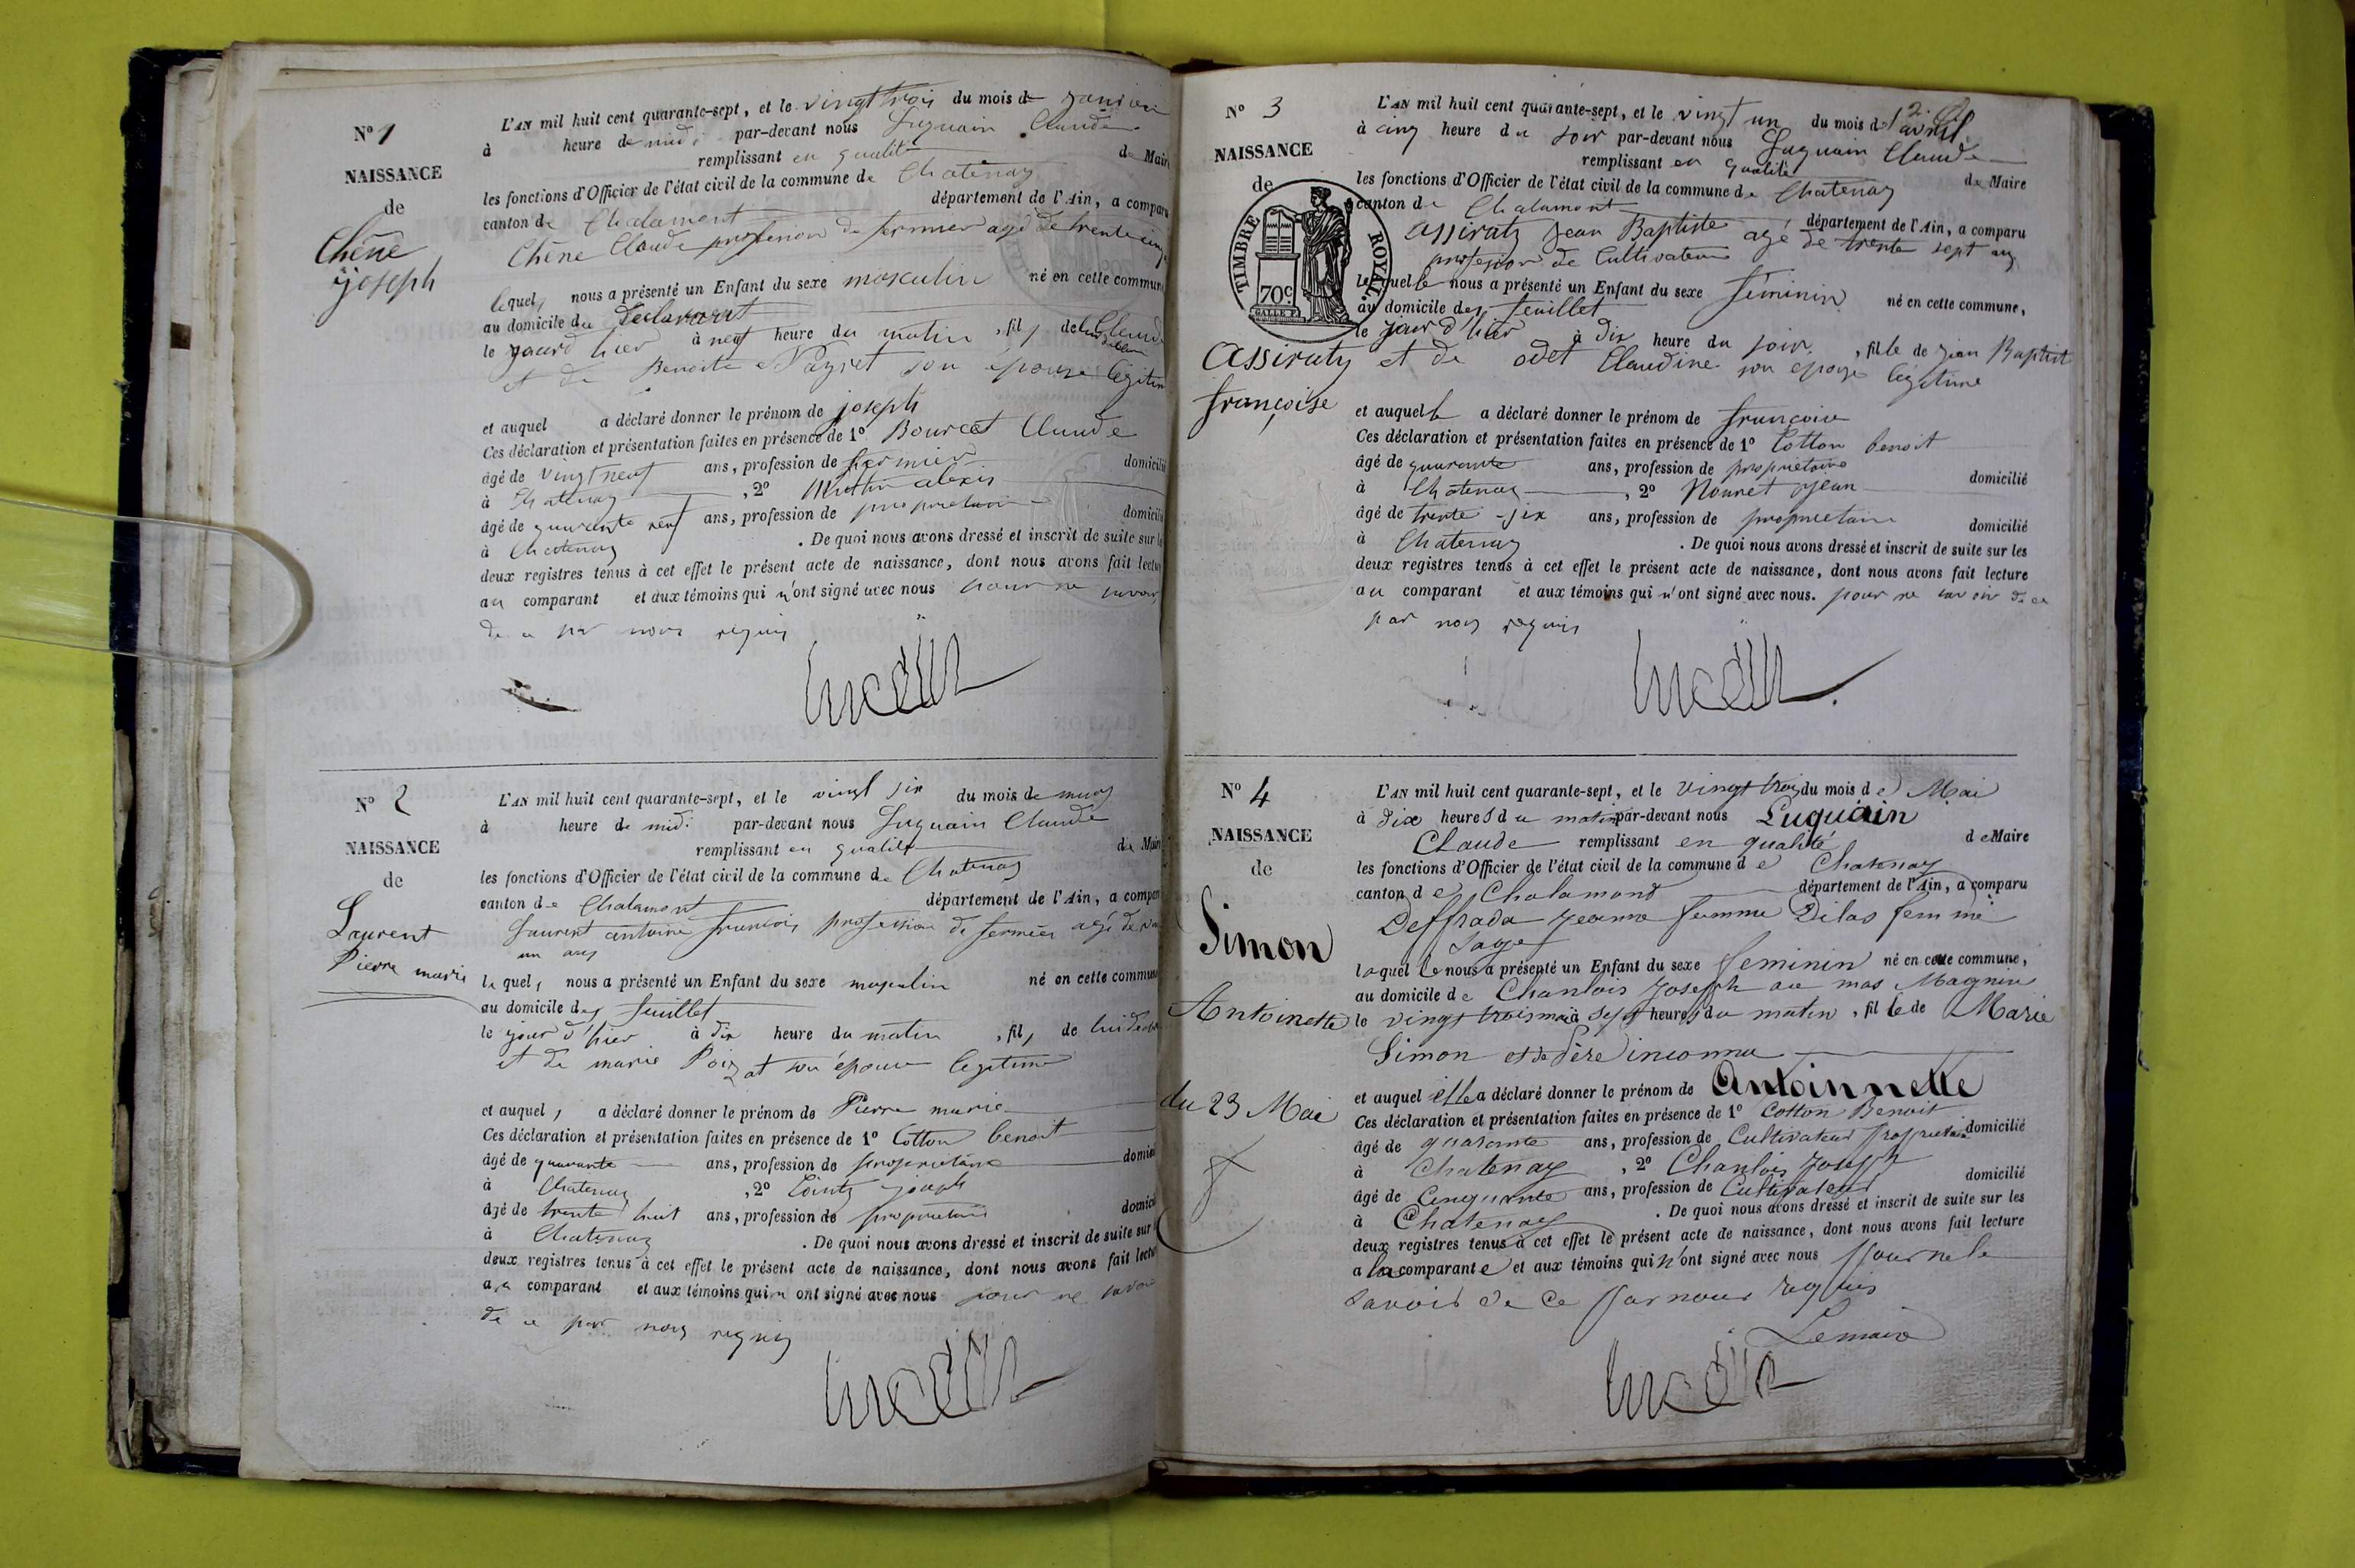 N° 1
NAISSANCE
de
Chêne
joseph
L'AN mil huit cent quarante-sept, et le vingt trois du mois de janvier
à heure de midi par-devant nous Luquain Claude
remplissant en qualité de Maire
les fonctions d'Officier de l'état civil de la commune de Chatenay
canton de Chalamont département de l'Ain, a comparu
Chêne Claude profession de fermier agé de trente cinq
lequel, nous a présenté un Enfant du sexe masculin né en cette commune
au domicile du Déclarant
le jourd hier à neuf heure du matin, fils de Claude
et de Benoite Payret son épouse légitime
et auquel a déclaré donner le prénom de joseph
Ces déclaration et présentation faites en présence de 1° Bourcet Claude
âgé de vingt neuf ans, profession de fermier domicilié
à Chatenay, 2° Martin alexis
âgé de quarante neuf ans, profession de propriétaire domicilié
à Chatenay. De quoi nous avons dressé et inscrit de suite sur les
deux registres tenus à cet effet le présent acte de naissance, dont nous avons fait lecture
au comparant et aux témoins qui n'ont signé avec nous pour ne savoir
de ce par nous requis
N° 2
NAISSANCE
de
Laurent
Pierre marie
L'AN mil huit cent quarante-sept, et le vingt six du mois de mars
à heure de midi par-devant nous Luquain Claude
remplissant en qualité de Maire
les fonctions d'Officier de l'état civil de la commune de Chatenay
canton de Chalamont département de l'Ain, a comparu
Laurent antoine francois profession de fermier agé de
un ans
lequel, nous a présenté un Enfant du sexe masculin né en cette commune
au domicile des feuillet
le jour d'hier à dix heure du matin, fils de lui
et de marie Poizat son épouse legitime
et auquel, a déclaré donner le prénom de Pierre marie
Ces déclaration et présentation faites en présence de 1° Cotton benoit
âgé de quarante ans, profession de propriétaire domicilié
à Chatenay, 2° joseph
âgé de trente huit ans, profession de propriétaire domicilié
à Chatenay. De quoi nous avons dressé et inscrit de suite sur
deux registres tenus à cet effet le présent acte de naissance, dont nous avons fait lecture
au comparant et aux témoins qui n ont signé avec nous pour ne savoir
de ce par nous requis
N° 3
NAISSANCE
de
TIMBRE ROYAL.
70c
Assiraty
françoise
L'AN mil huit cent quarante-sept, et le vingt un du mois d'avril
à cinq heure du soir par-devant nous Luquain Claude
remplissant en qualité de Maire
les fonctions d'Officier de l'état civil de la commune de Chatenay
canton de Chalamont département de l'Ain, a comparu
Assiraty Jean Baptiste agé de trente sept ans
profession de Cultivateur
lequel nous a présenté un Enfant du sexe féminin né en cette commune,
au domicile des feuillet
le jour d'hier à dix heure du soir, fille de jean Baptist
et de odet Claudine son épouse légitime
et auquel a déclaré donner le prénom de françoise
Ces déclaration et présentation faites en présence de 1° Cotton benoit
âgé de quarante ans, profession de propriétaire domicilié
à Chatenay, 2° Nouret jean
âgé de trente six ans, profession de propriétaire domicilié
à Chatenay. De quoi nous avons dressé et inscrit de suite sur les
deux registres tenus à cet effet le présent acte de naissance, dont nous avons fait lecture
au comparant et aux témoins qui n'ont signé avec nous. pour ne savoir de ce
par nous requis
N° 4
NAISSANCE
de
Simon
Antoinette
du 23 Mai
L'AN mil huit cent quarante-sept, et le vingt trois du mois de Mai
à dix heures du matin par-devant nous Luquain
Claude remplissant en qualité de Maire
les fonctions d'Officier de l'état civil de la commune de Chatenay
canton de Chalamont département de l'Ain, a comparu
Deffrada jeanne femme Dilas femme
sage
laquelle nous a présenté un Enfant du sexe feminin né en cette commune,
au domicile de Chanlois Joseph au mas Magnin
le vingt trois mai à sept heures du matin, fille de Marie
Simon et de Père inconnu
et auquel elle a déclaré donner le prénom de Antoinnette
Ces déclaration et présentation faites en présence de 1° Cotton Benoit
âgé de quarante ans, profession de Cultivateur propriétaire domicilié
à Chatenay, 2° Chanlois Joseph
âgé de Cinquante ans, profession de Cultivateur domicilié
à Chatenay. De quoi nous avons dressé et inscrit de suite sur les
deux registres tenus à cet effet le présent acte de naissance, dont nous avons fait lecture
a la comparante et aux témoins qui n'ont signé avec nous pour ne le
savoir de ce par nous requis
Le maire